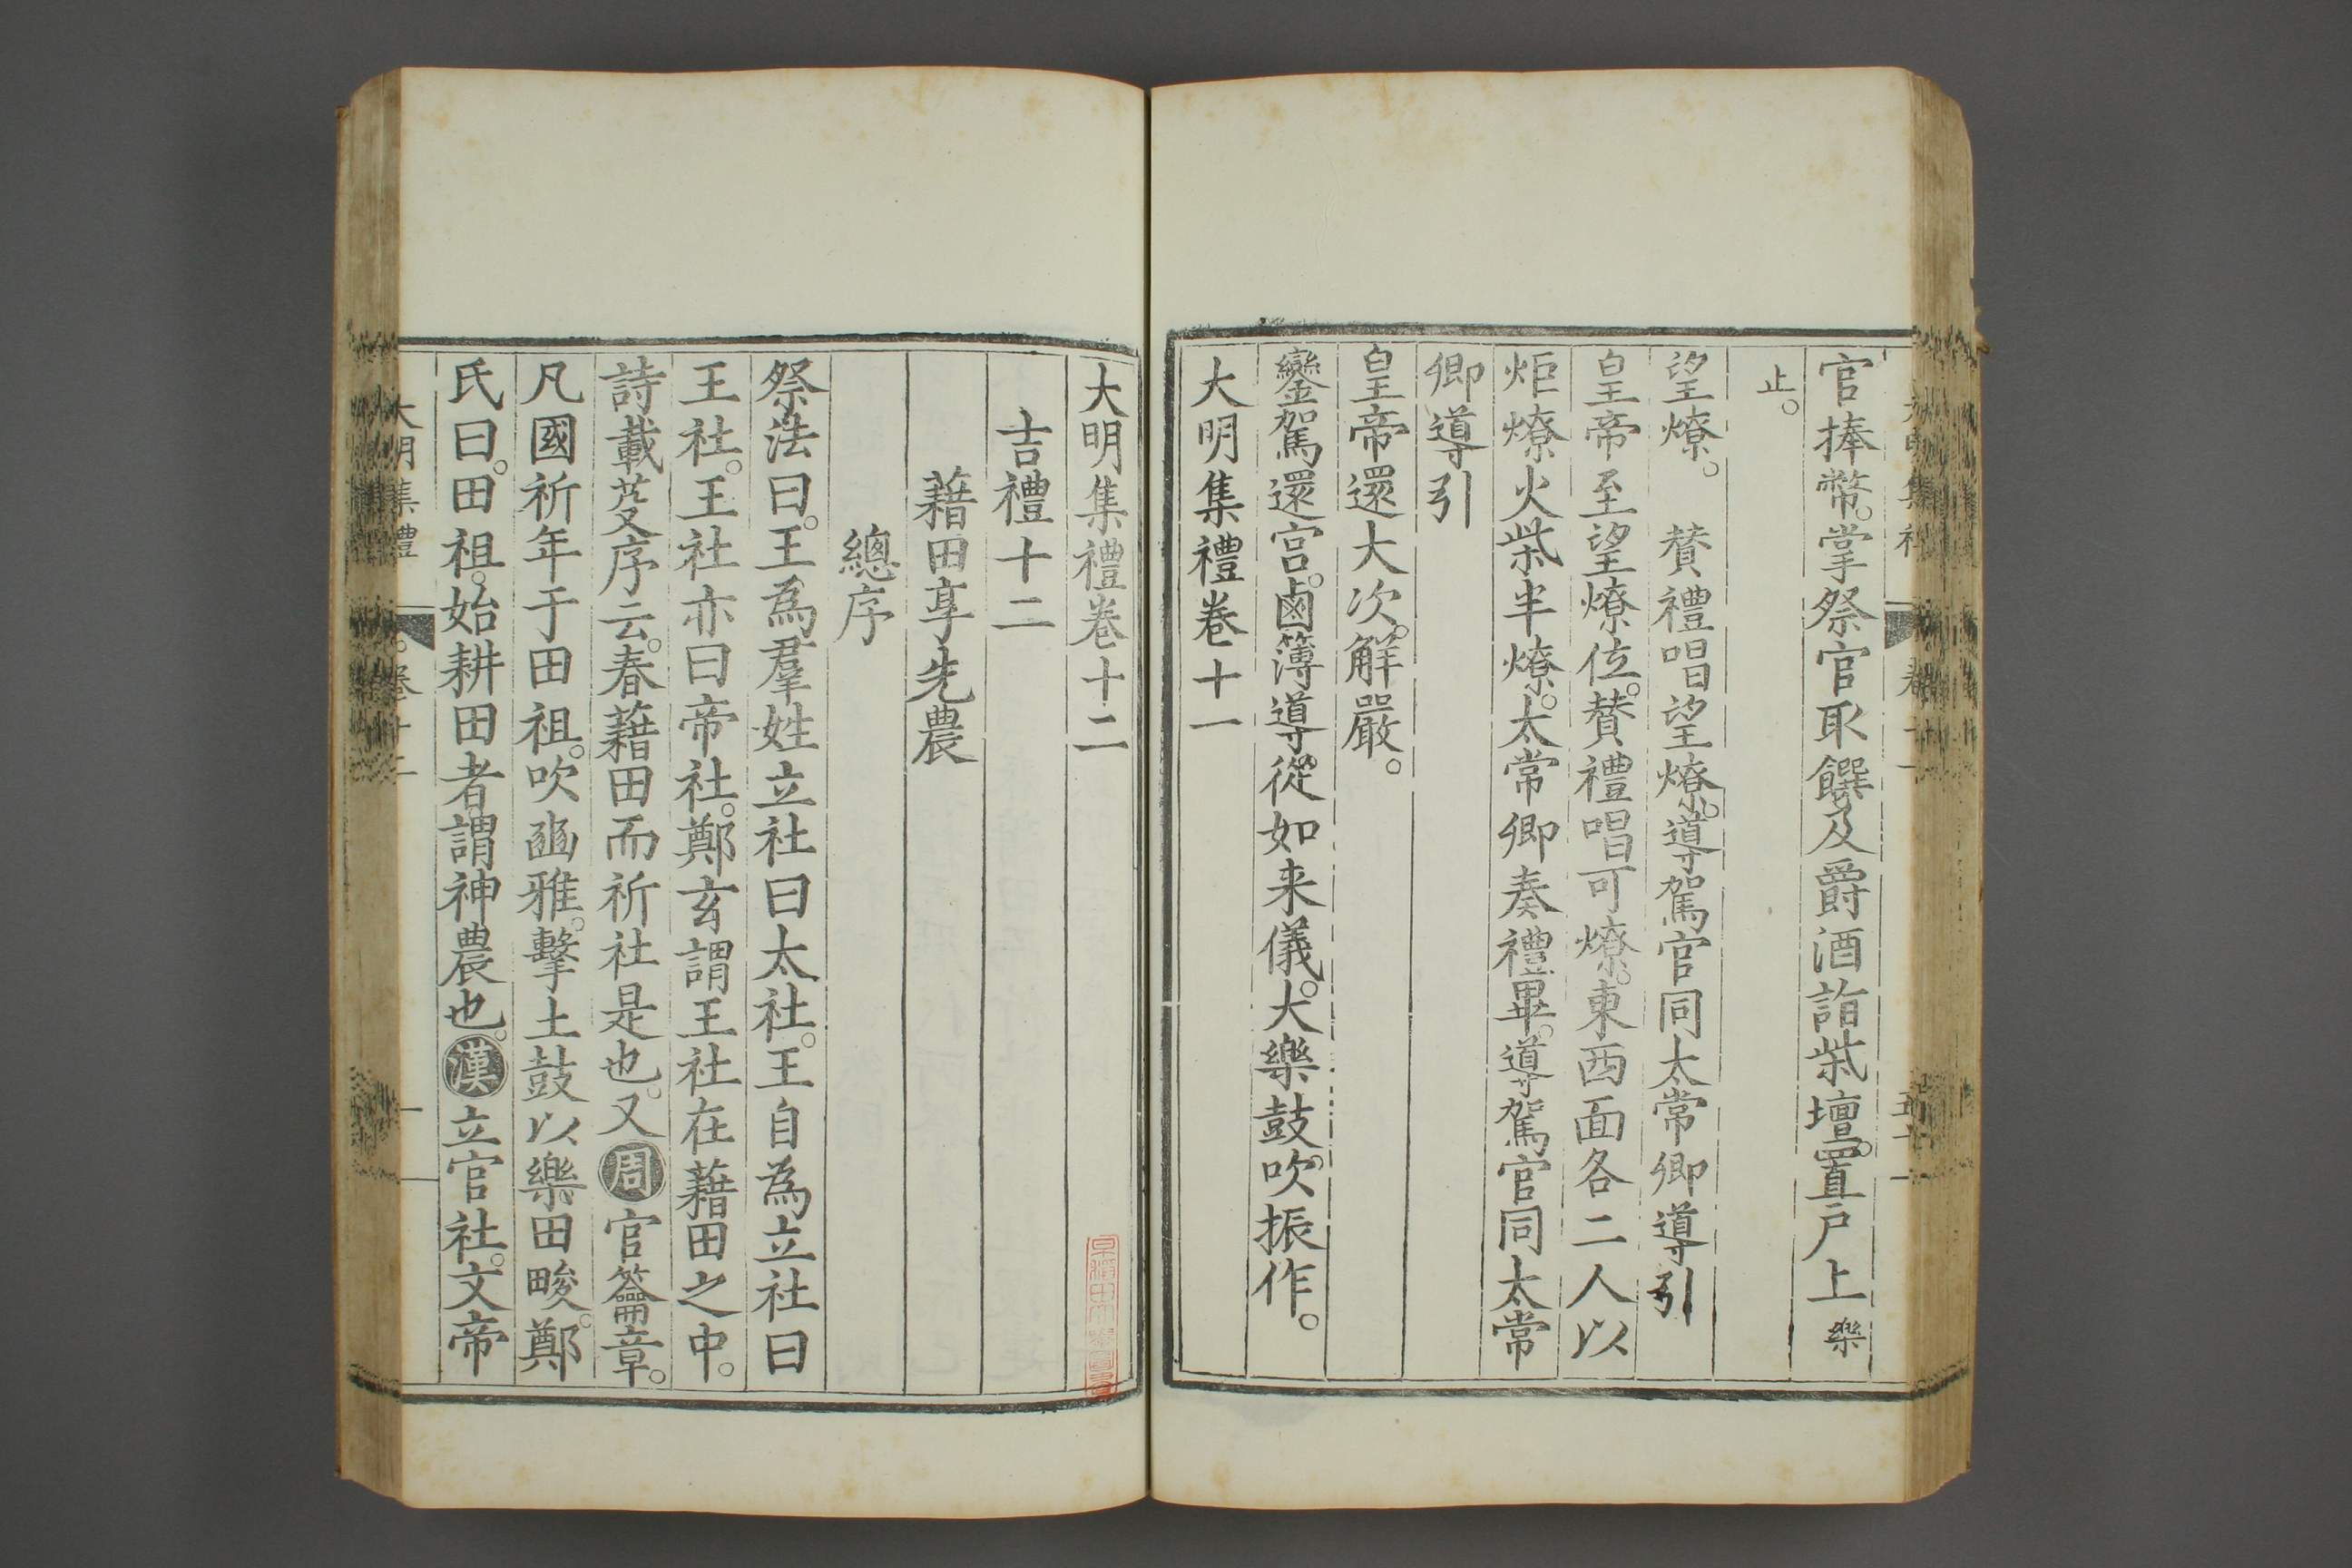 官捧幣。掌祭官取饌及爵酒詣柴壇。置戶上樂
止。
望燎。 賛禮唱望燎。導駕官同太常卿導引
皇帝至望燎位。賛禮唱可燎。東西面各二人以
炬燎火柴半燎。太常卿奏禮畢。導駕官同太常
卿導引
皇帝還大次。解嚴。
鑾駕還宫。鹵簿導從如来儀。大樂鼓吹振作。
大明集禮卷十一
大明集禮卷十二
吉禮十二
藉田享先農
總序
祭法曰。王為羣姓立社曰太社。王自為立社曰
王社。王社亦曰帝社。鄭玄謂王社在藉田之中。
詩載芟序云。春藉田而祈社是也。又周官籥章。
凡國祈年于田祖。吹豳雅。擊土鼓以樂田畯。鄭
氏曰。田祖。始耕田者謂神農也。漢立官社。文帝
大明集禮 卷十二 一